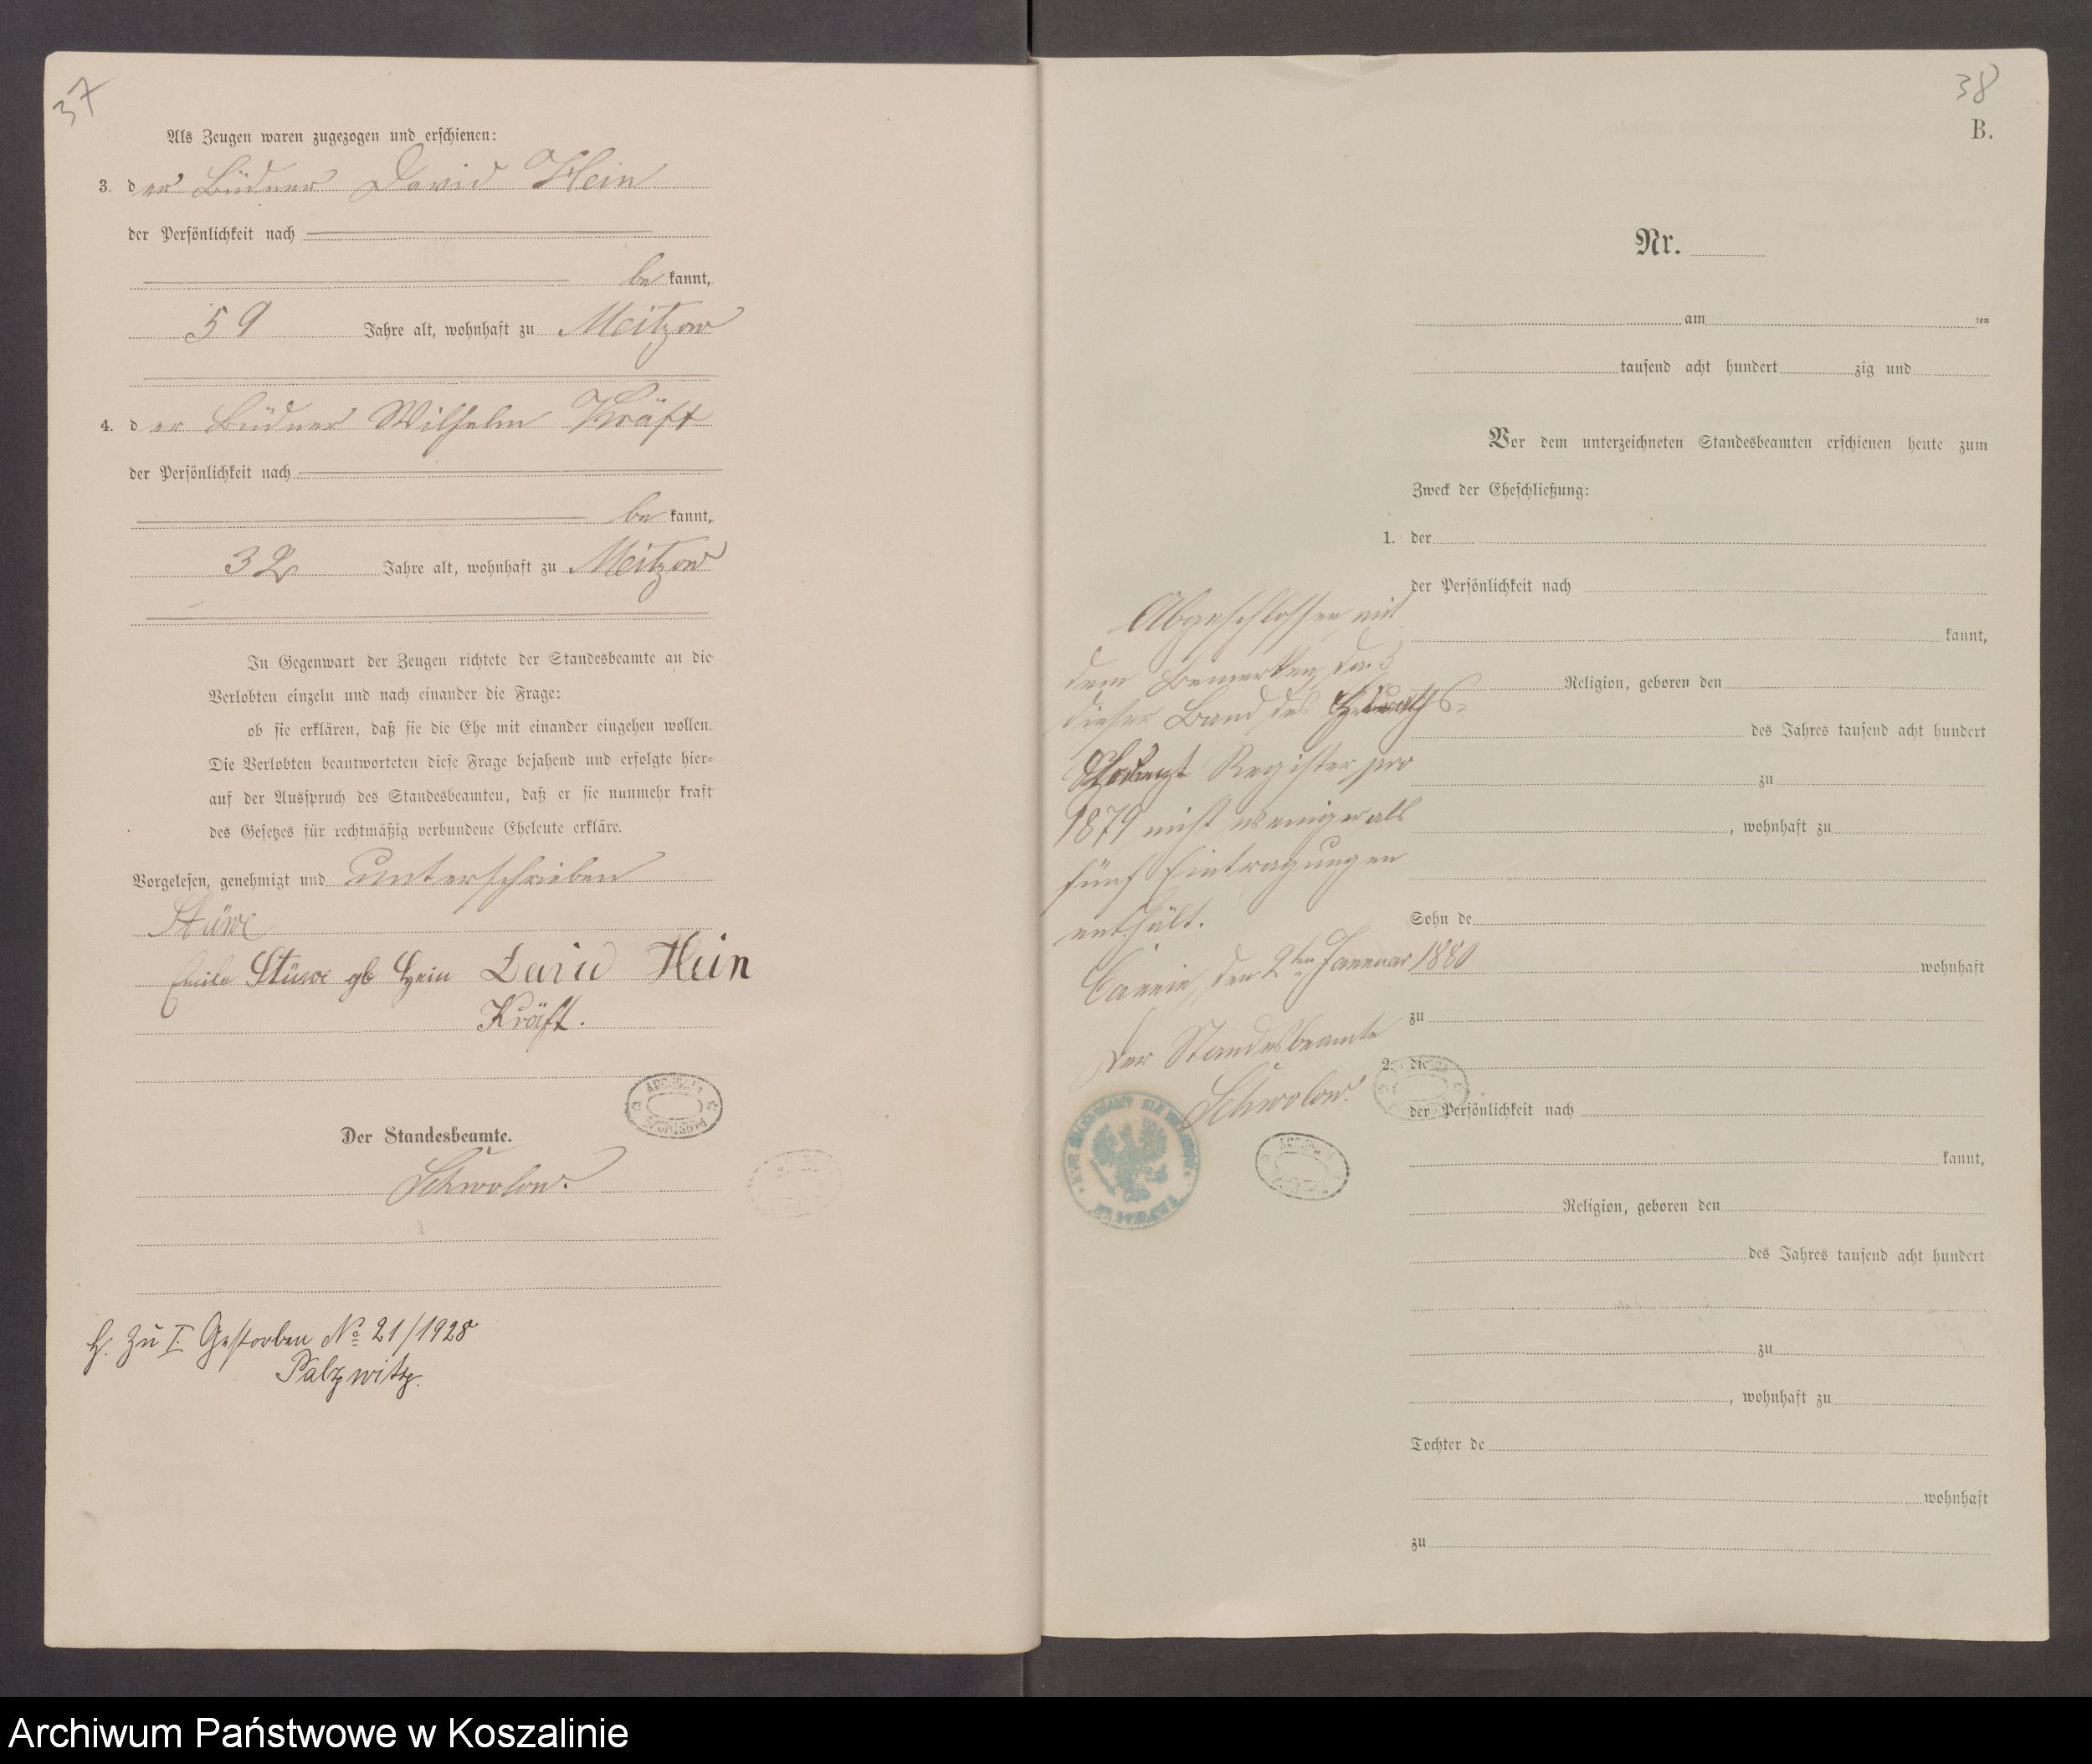 37
Als Zeugen waren zugezogen und erschienen:
3. der Büdner David Hein
der Persönlichkeit nach
be kannt,
59 Jahre alt, wohnhaft zu Meitzow
4. der Büdner Wilhelm Kräft
der Persönlichkeit nach
be kannt,
32 Jahre alt, wohnhaft zu Meitzow
In Gegenwart der Zeugen richtete der Standesbeamte an die
Verlobten einzeln und nach einander die Frage:
ob sie erklären, daß sie die Ehe mit einander eingehen wollen.
Die Verlobten beantworteten diese Frage bejahend und erfolgte hier=
auf der Ausspruch des Standesbeamten, daß er sie nunmehr kraft
des Gesetzes für rechtmäßig verbundene Eheleute erkläre.
Vorgelesen, genehmigt und unterschrieben
Stüwe
Stüwe gb Hein David Hein
Kräft.
Der Standesbeamte.
Schwolow.
H. zu I. Gestorben No 21/1928
Palzwitz.
38
B.
Nr.
am ten
tausend acht hundert zig und
Vor dem unterzeichneten Standesbeamten erschienen heute zum
Zweck der Eheschließung:
1. der
der Persönlichkeit nach
kannt,
Religion, geboren den
des Jahres tausend acht hundert
zu
, wohnhaft zu
Sohn de
wohnhaft
zu
2. die
der Persönlichkeit nach
kannt,
Religion, geboren den
des Jahres tausend acht hundert
zu
, wohnhaft zu
Tochter de
wohnhaft
zu
Abgeschlossen mit
dem Bemerken, daß
dieser Band des
Register pro
1879 nicht weniger als
fünf Eintragungen
enthält.
den 2ten Januar 1880
Der Standesbeamte
Schwolow.
Archiwum Państwowe w Koszalinie